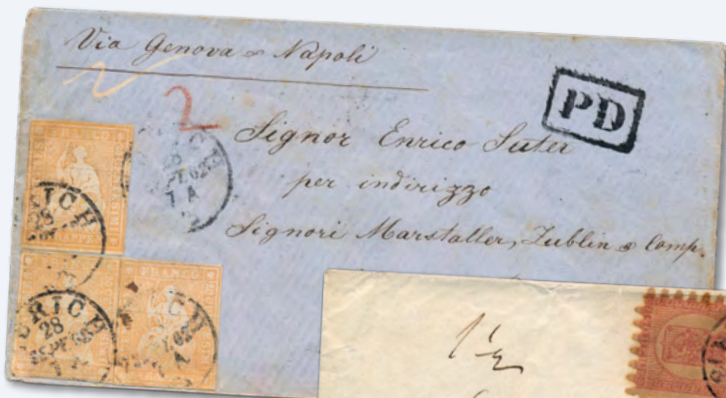 Via Genova & Napoli
2
PD
Signor Enrico Suter
per indirizzo
Signori Marstaller, Zublin & Comp.
FRANCO
RICH
28
ZÜRICH
28
SEPT 62
7 A
FRANCO
1½